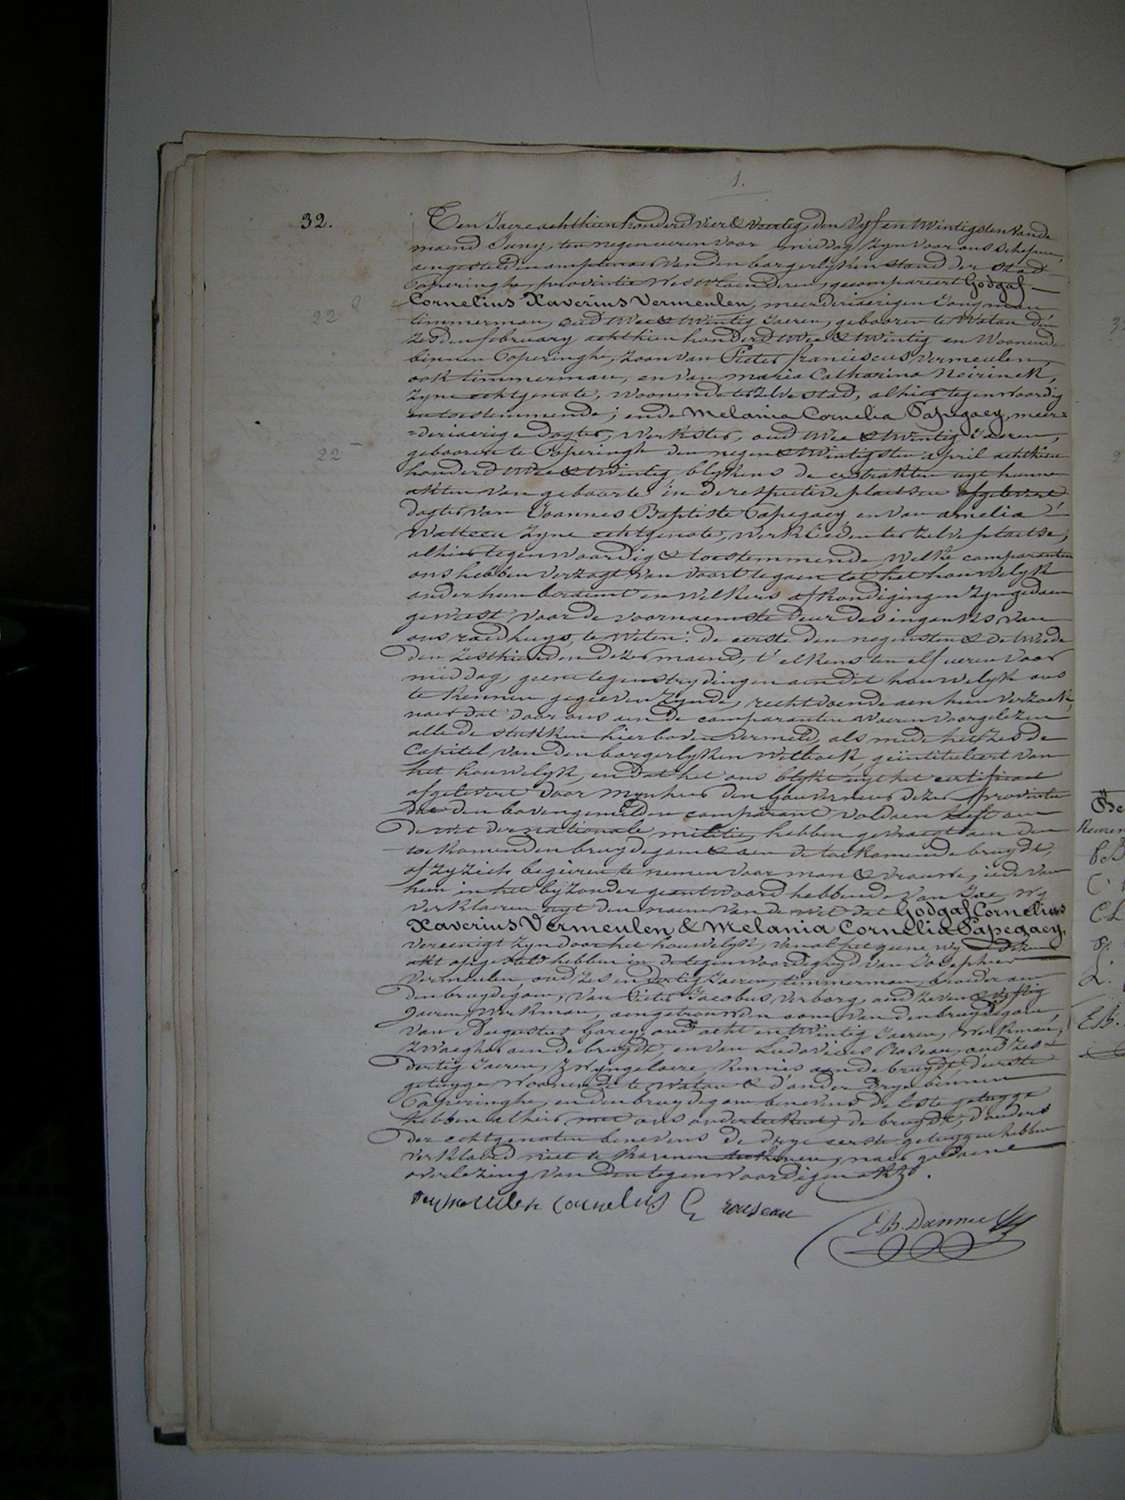 1.
32.
Ten Jaere achthien honderd vier & veertig, den vyf en twintigsten van de
maend Juny, ten negen uren voor middag, zyn voor ons schepene,
aengestelden amptenaer van den borgerlyken stand der stad
Poperinghe, provintie Westvlaenderen, gecompareert Godgaf
Cornelius Xaverius Vermeulen, meerderiaerigen Jongman
timmerman, oud twee & twintig Jaeren, gebooren te Watou den
zesden february achthien honderd twee & twintig en woonende
binnen Poperinghe, zoon van Pieter franciscus Vermeulen,
ook timmerman, en van maria Catharina Neirinck,
zyne echtgenote, woonende ter zelve stad, alhier tegenwoordig
en toestemmende; ende Melania Cornelia Papegaey, meer-
-deriaerige dogter, werkster, oud twee & twintig Jaeren,
gebooren te Poperinghe den negen & twintigsten april achthien
22
honderd twee & twintig, blykens de extrakten uyt hunne
akten van geboorte in de respective plaetsen afgelevert
dogter van Joannes Baptiste Papegaey en van amelia
Watteeu zyne echtgenote, werklieden ter zelve plaetse,
alhier tegenwoordig & toestemmende welke comparanten
ons hebben verzogt van voort te gaen tot het houwelyk
onder hun beraemt en welkers afkondigingen zyn gedaen
geweest voor de voornaemste deur des ingangs van
ons raedhuys, te weten: de eerste den negensten & de tweede
den zesthienden dezer maend, t'elkens ten elf uren voor
middag, geene tegenstrydingen aen dit houwelyk ons
te kennen gegeeven zynde, rechtdoende aen hun verzoek,
naer dat door ons aen de comparanten waeren voorgelezen
alle de stukken hier boven vermeld, als mede het zesde
Capitel van den borgerlyken wetboek, geïntituleert van
het houwelyk, en dat het ons blykt uyt het certificaet
afgelevert door mynheer den Gouverneur dezer Provintie
dat den bovengemelden comparant voldaen heeft aen
de wet der nationale militie, hebben gevraegt aen den
toekomenden bruydegom & aen de toekomende bruyd,
of zy zich begeeren te nemen voor man & vrouwe; ieder van
hun in het byzonder geantwoord hebbende van Jae, wy
verklaeren uyt den naem van de wet dat Godgaf Cornelius
Xaverius Vermeulen, & Melania Cornelia Papegaey,
vereenigt zyn door het houwelyk, van al het geene wy dezen
akt opgesteld hebben in de tegenwoordigheyd van Josephus
Vermeulen, oud zes en dertig Jaeren, timmerman, broeder aen
den bruydegom, van Pieter Jacobus Verborg, oud zeven & vyftig
Jaeren, werkman, aengetrouwden oom van den bruydegom,
van Augustus Garcy, oud acht en twintig Jaeren, werkman,
Zwaeger aen de bruyd, en van Ludovicus Roseau, oud zes-
dertig Jaeren, zwyngelaere, kennis aen de bruyd, d'eerste
getuyge woonende te Watou & d'andere drye binnen
Poperinghe, en den bruydegom benevens de leste getuyge
hebben alhier met ons onderteekent, de bruyd, d'ouders
der echtgenoten benevens de drye eerste getuygen hebben
verklaerd niet te kunnen teekenen, naer gedaene
overlezing van den tegenwoordigen akte.
vermeulen cornelus L rouseau